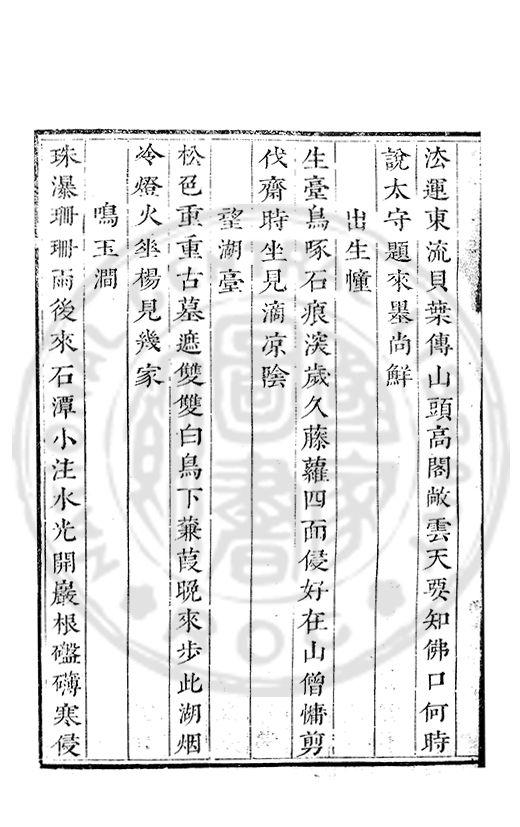 法運東流貝葉傳山頭高閣敞雲天要知佛口何時
說太守題來墨尚鮮
出生幢
生臺鳥啄石痕深歲久藤蘿四面侵好在山僧慵剪
伐齋時坐見滴凉陰
望湖臺
松邑重重古墓遮雙雙白鳥下蒹葭晚來步此湖烟
冷燈火垂楊見幾家
鳴玉澗
珠瀑珊珊雨後來石潭小注水光開巖根礲礴寒侵